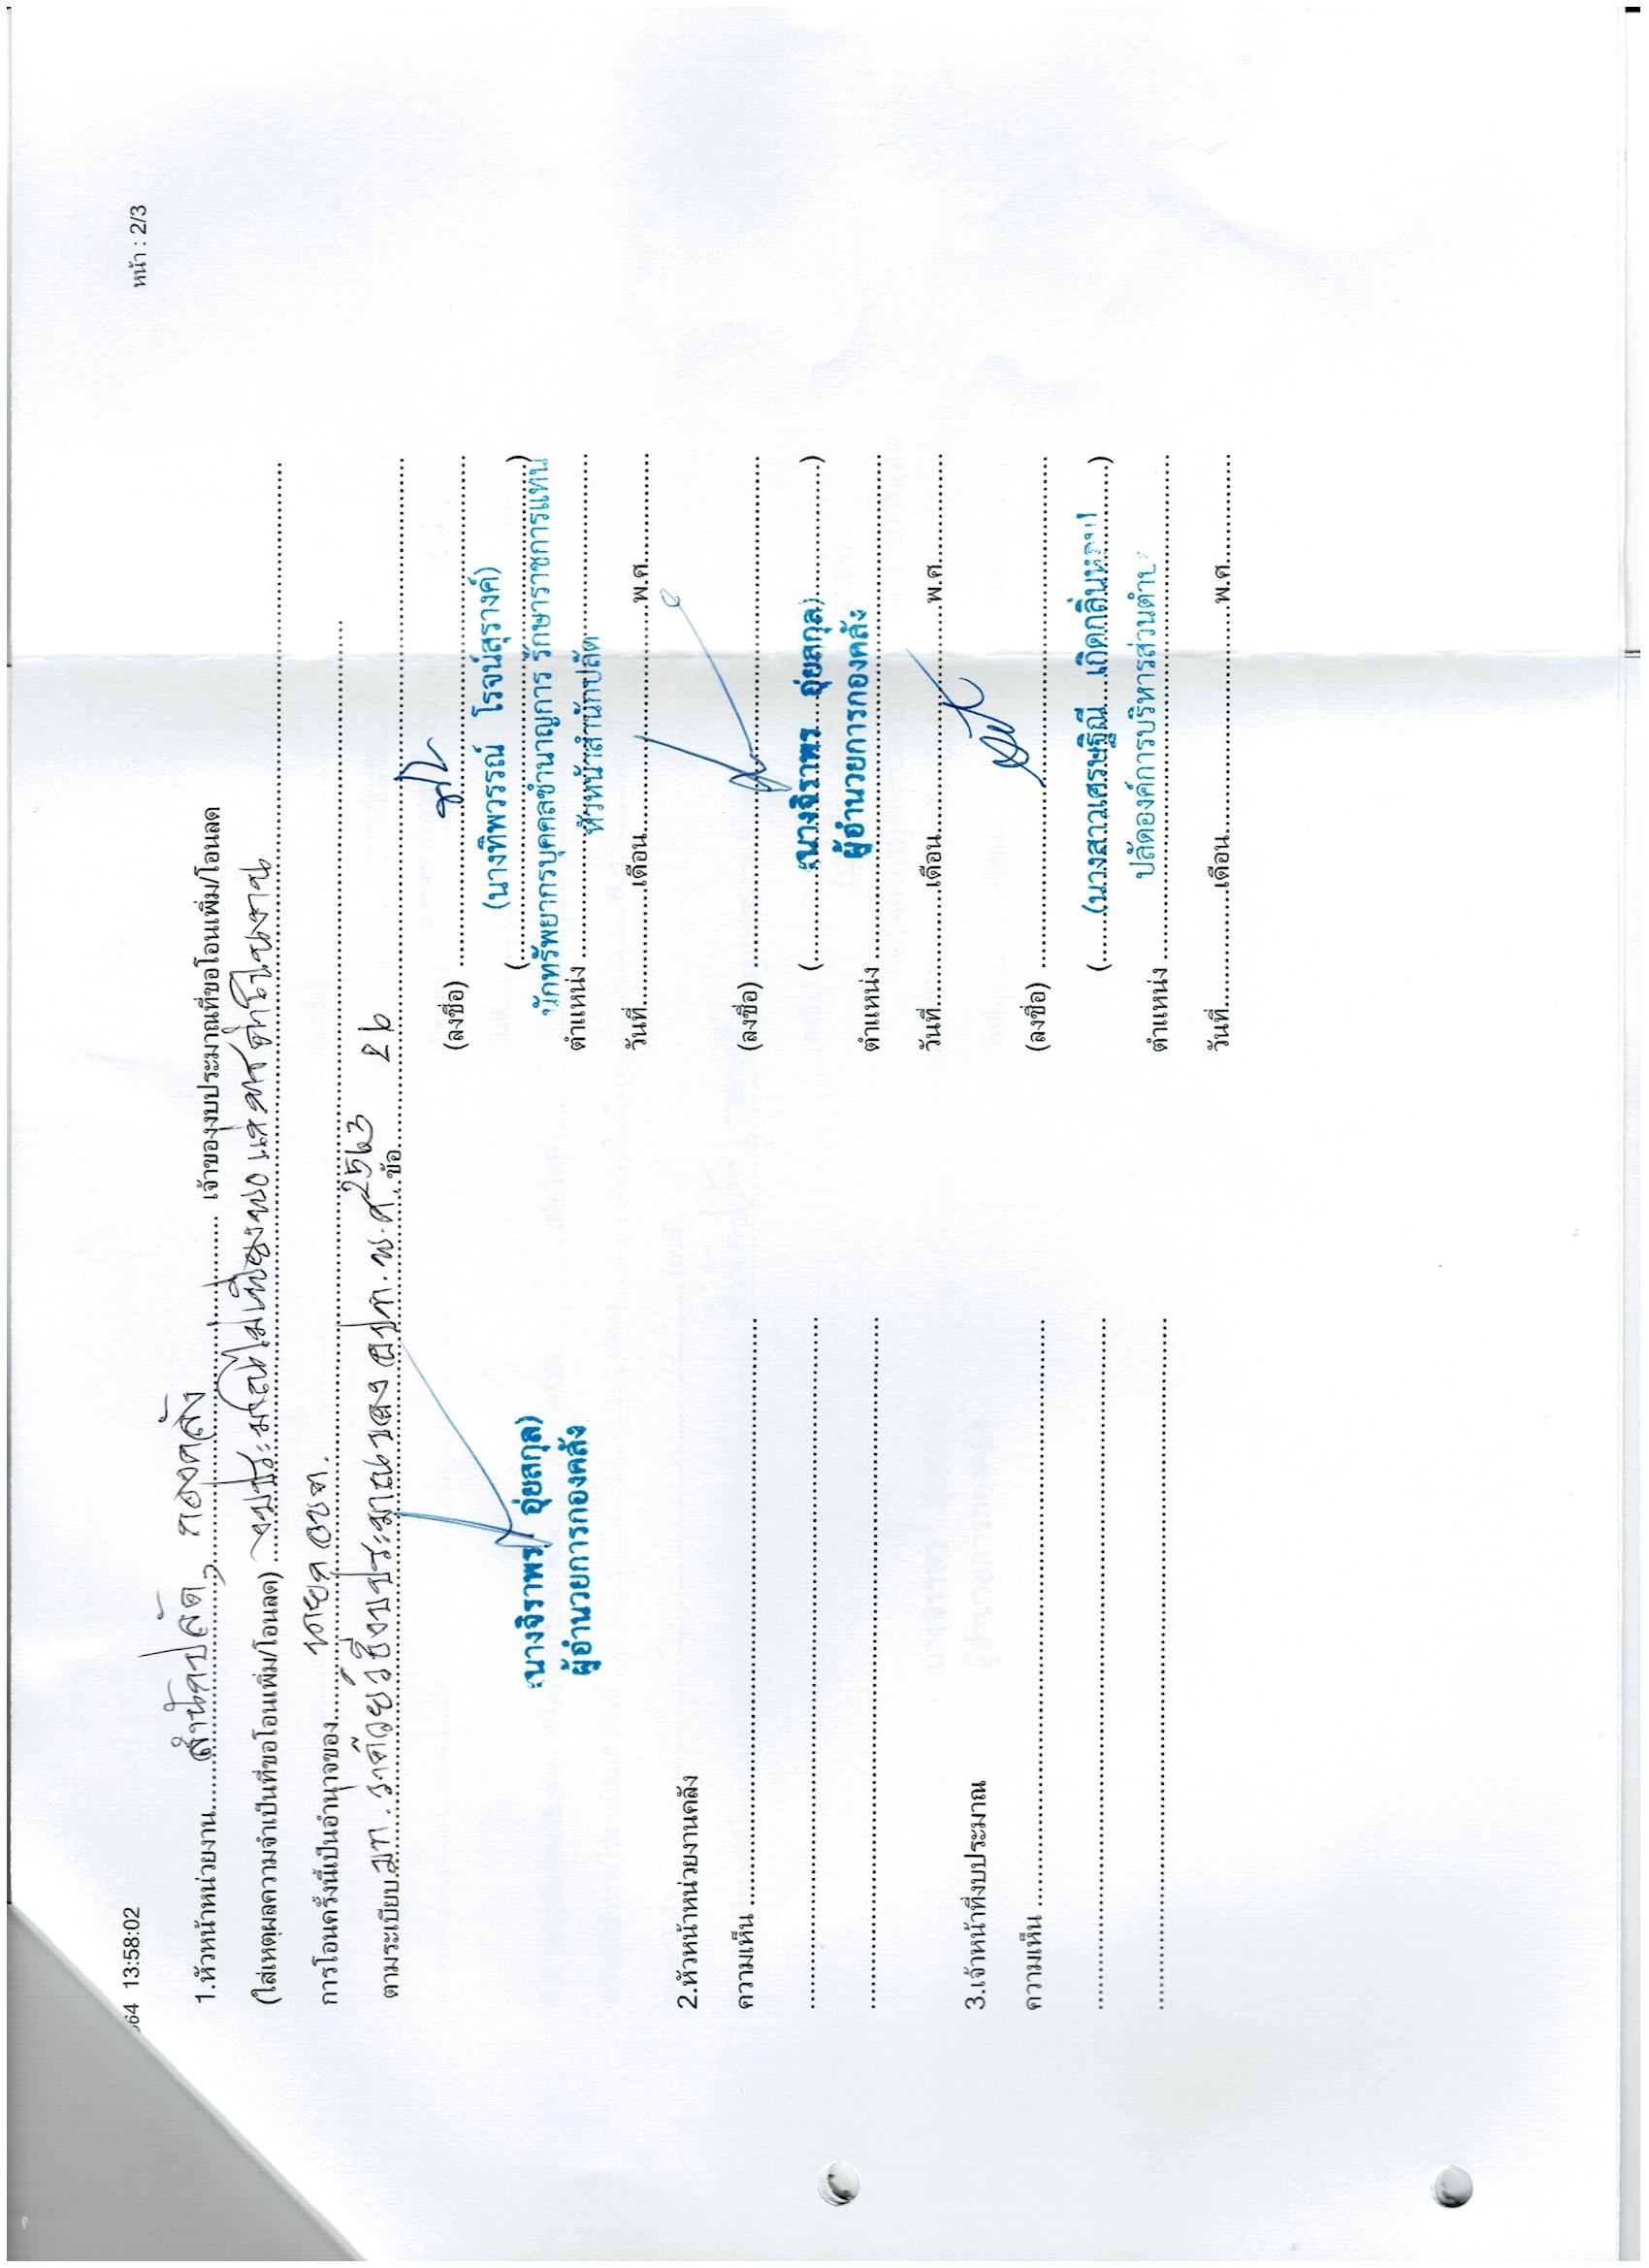 หน้า : 2/3
64 13:58:02
1.หัวหน้าหน่วยงาน......สำนักปลัด, กองคลัง...... เจ้าของงบประมาณที่ขอโอนเพิ่ม/โอนลด
(ใส่เหตุผลความจำเป็นที่ขอโอนเพิ่ม/โอนลด) งบประมาณไม่เพียงพอ
การโอนครั้งนี้เป็นอำนาจของ......นายก อบต.
ตามระเบียบ มท. ว่าด้วยวิธีงบประมาณของ อปท. พ.ศ. 2563 ข้อ 26
(ลงชื่อ)
(นางทิพวรรณ์ โรจน์สุรางค์)
นักทรัพยากรบุคคลชำนาญการ รักษาราชการแทน
ตำแหน่ง หัวหน้าสำนักปลัด
วันที่............เดือน............พ.ศ............
นางจิราพร อุ่ยสกุล)
ผู้อำนวยการกองคลัง
2.หัวหน้าหน่วยงานคลัง
ความเห็น
(ลงชื่อ)
(นางจิราพร อุ่ยสกุล)
ผู้อำนวยการกองคลัง
ตำแหน่ง
วันที่............เดือน............พ.ศ............
3.เจ้าหน้าที่งบประมาณ
ความเห็น
(ลงชื่อ)
(นางสาวเศรษฐิณี เกิดกลิ่นหอม)
ปลัดองค์การบริหารส่วนตำบล
ตำแหน่ง
วันที่............เดือน............พ.ศ............